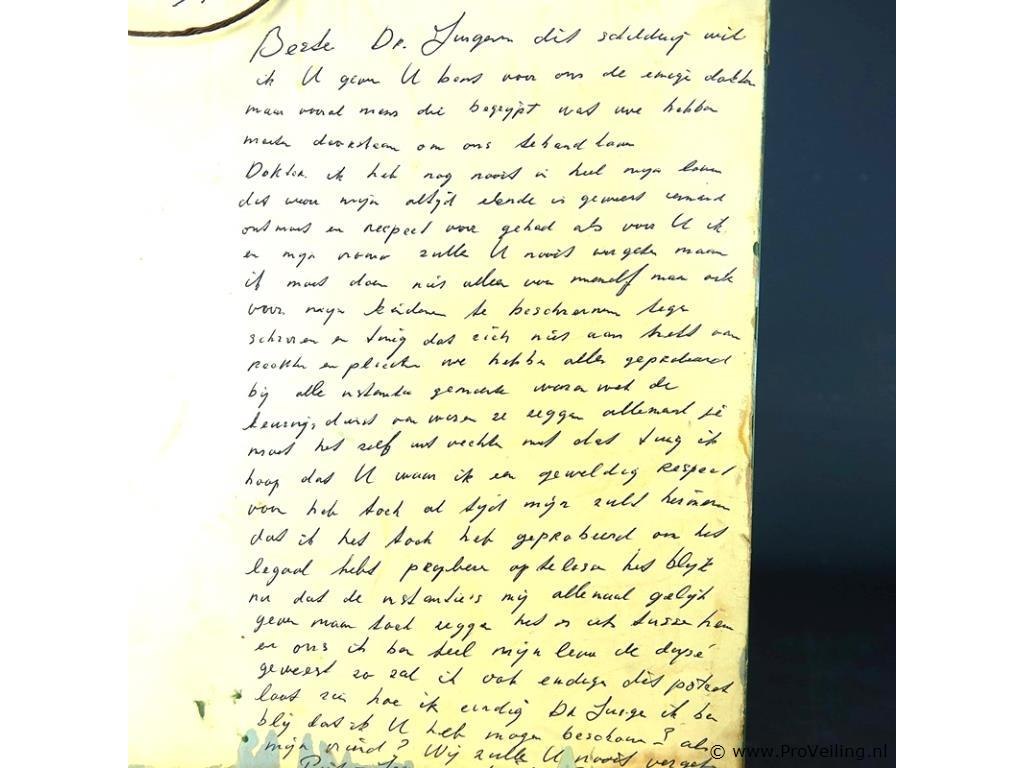 Beste Dr. Jurgen dit schilderij wil
ik U geven U bent voor ons de enige dokter
maar vooral mens die begrijpt wat we hebben
moeten doorstaan om ons te handhaven
Dokter ik heb nog nooit in heel mijn leven
dat voor mijn altijd elende is geweest iemand
ontmoet en respect voor gehad als voor U ik
en mijn vrouw zulle U nooit vergeten maar
ik moet doen niet alleen voor mezelf maar ook
voor mijn kinderen te beschermen tege
schoren en tuig dat zich niet aan trekt van
rechten en plichten we hebben alles geprobeerd
bij alle instanties gemeente
keurings dienst van waren ze zeggen allemaal je
moet het zelf uit vechten met dat tuig ik
hoop dat U waar ik een geweldig respect
voor heb toch al tijd mijn zult herineren
dat ik het toch heb geprobeerd om het
legaal hebt probleem op te lossen het blijkt
nu dat de instantie's mij allemaal gelijk
geven maar toch zegge het is iets tusse hem
en ons ik ben heel mijn leven de dupé
geweest zo zal ik ook eindige dit potret
laat zien hoe ik eindig Dr Jurge ik ben
blij dat ik U heb mogen beschouwen? als
mijn vriend? Wij zulle U nooit vergeten
© www.ProVeiling.nl